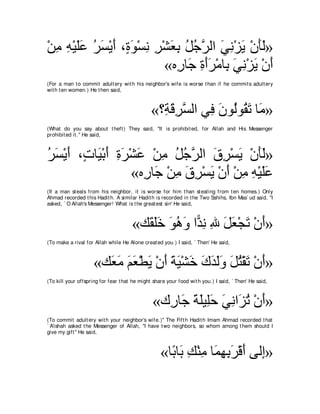 «لَأَنْ يَزْنِيَ الرَّجُلُ بِعَشْرِ نِسْوَةٍ، أَيْسَرُ عَلَيْهِ مِنْ
أَنْ يَزْنِيَ بِامْرَأَةِ جَارِهِ»
(For a man to commit adultery with his neighbor's wife is worse than if he commits adultery
with ten women.) He then said,
«مَا تَقُولُونَ فِي السَّرِقَةِ؟»
(What do you say about theft) They said, "It is prohibited, for Allah and His Messenger
prohibited it." He said,
«لَأَنْ يَسْرِقَ الرَّجُلُ مِنْ عَشْرَةِ أَبْيَاتٍ، أَيْسَرُ
عَلَيْهِ مِنْ أَنْ يَسْرِقَ مِنْ جَارِهِ»
(If a man steals from his neighbor, it is worse for him than stealing from ten homes.) Only
Ahmad recorded this Hadith. A similar Hadith is recorded in the Two Sahihs, Ibn Mas`ud said, "I
asked, `O Allah's Messenger! What is the greatest sin' He said,
«أَنْ تَجْعَلَ للهِ نِدًّا وَهُوَ خَلَقَكَ»
(To make a rival for Allah while He Alone created you.) I said, `Then' He said,
«أَنْ تَقْتُلَ وَلَدَكَ خَشْيَةَ أَنْ يَطْعَمَ مَعَكَ»
(To kill your offspring for fear that he might share your food with you.) I said, `Then' He said,
«أَنْ تُزَانِيَ حَلِيلَةَ جَارِكَ»
(To commit adultery with your neighbor's wife.)" The Fifth Hadith Imam Ahmad recorded that
`A'ishah asked the Messenger of Allah, "I have two neighbors, so whom among them should I
give my gift" He said,
«إِلَى أَقْرَبِهِمَا مِنْكِ بَابًا»